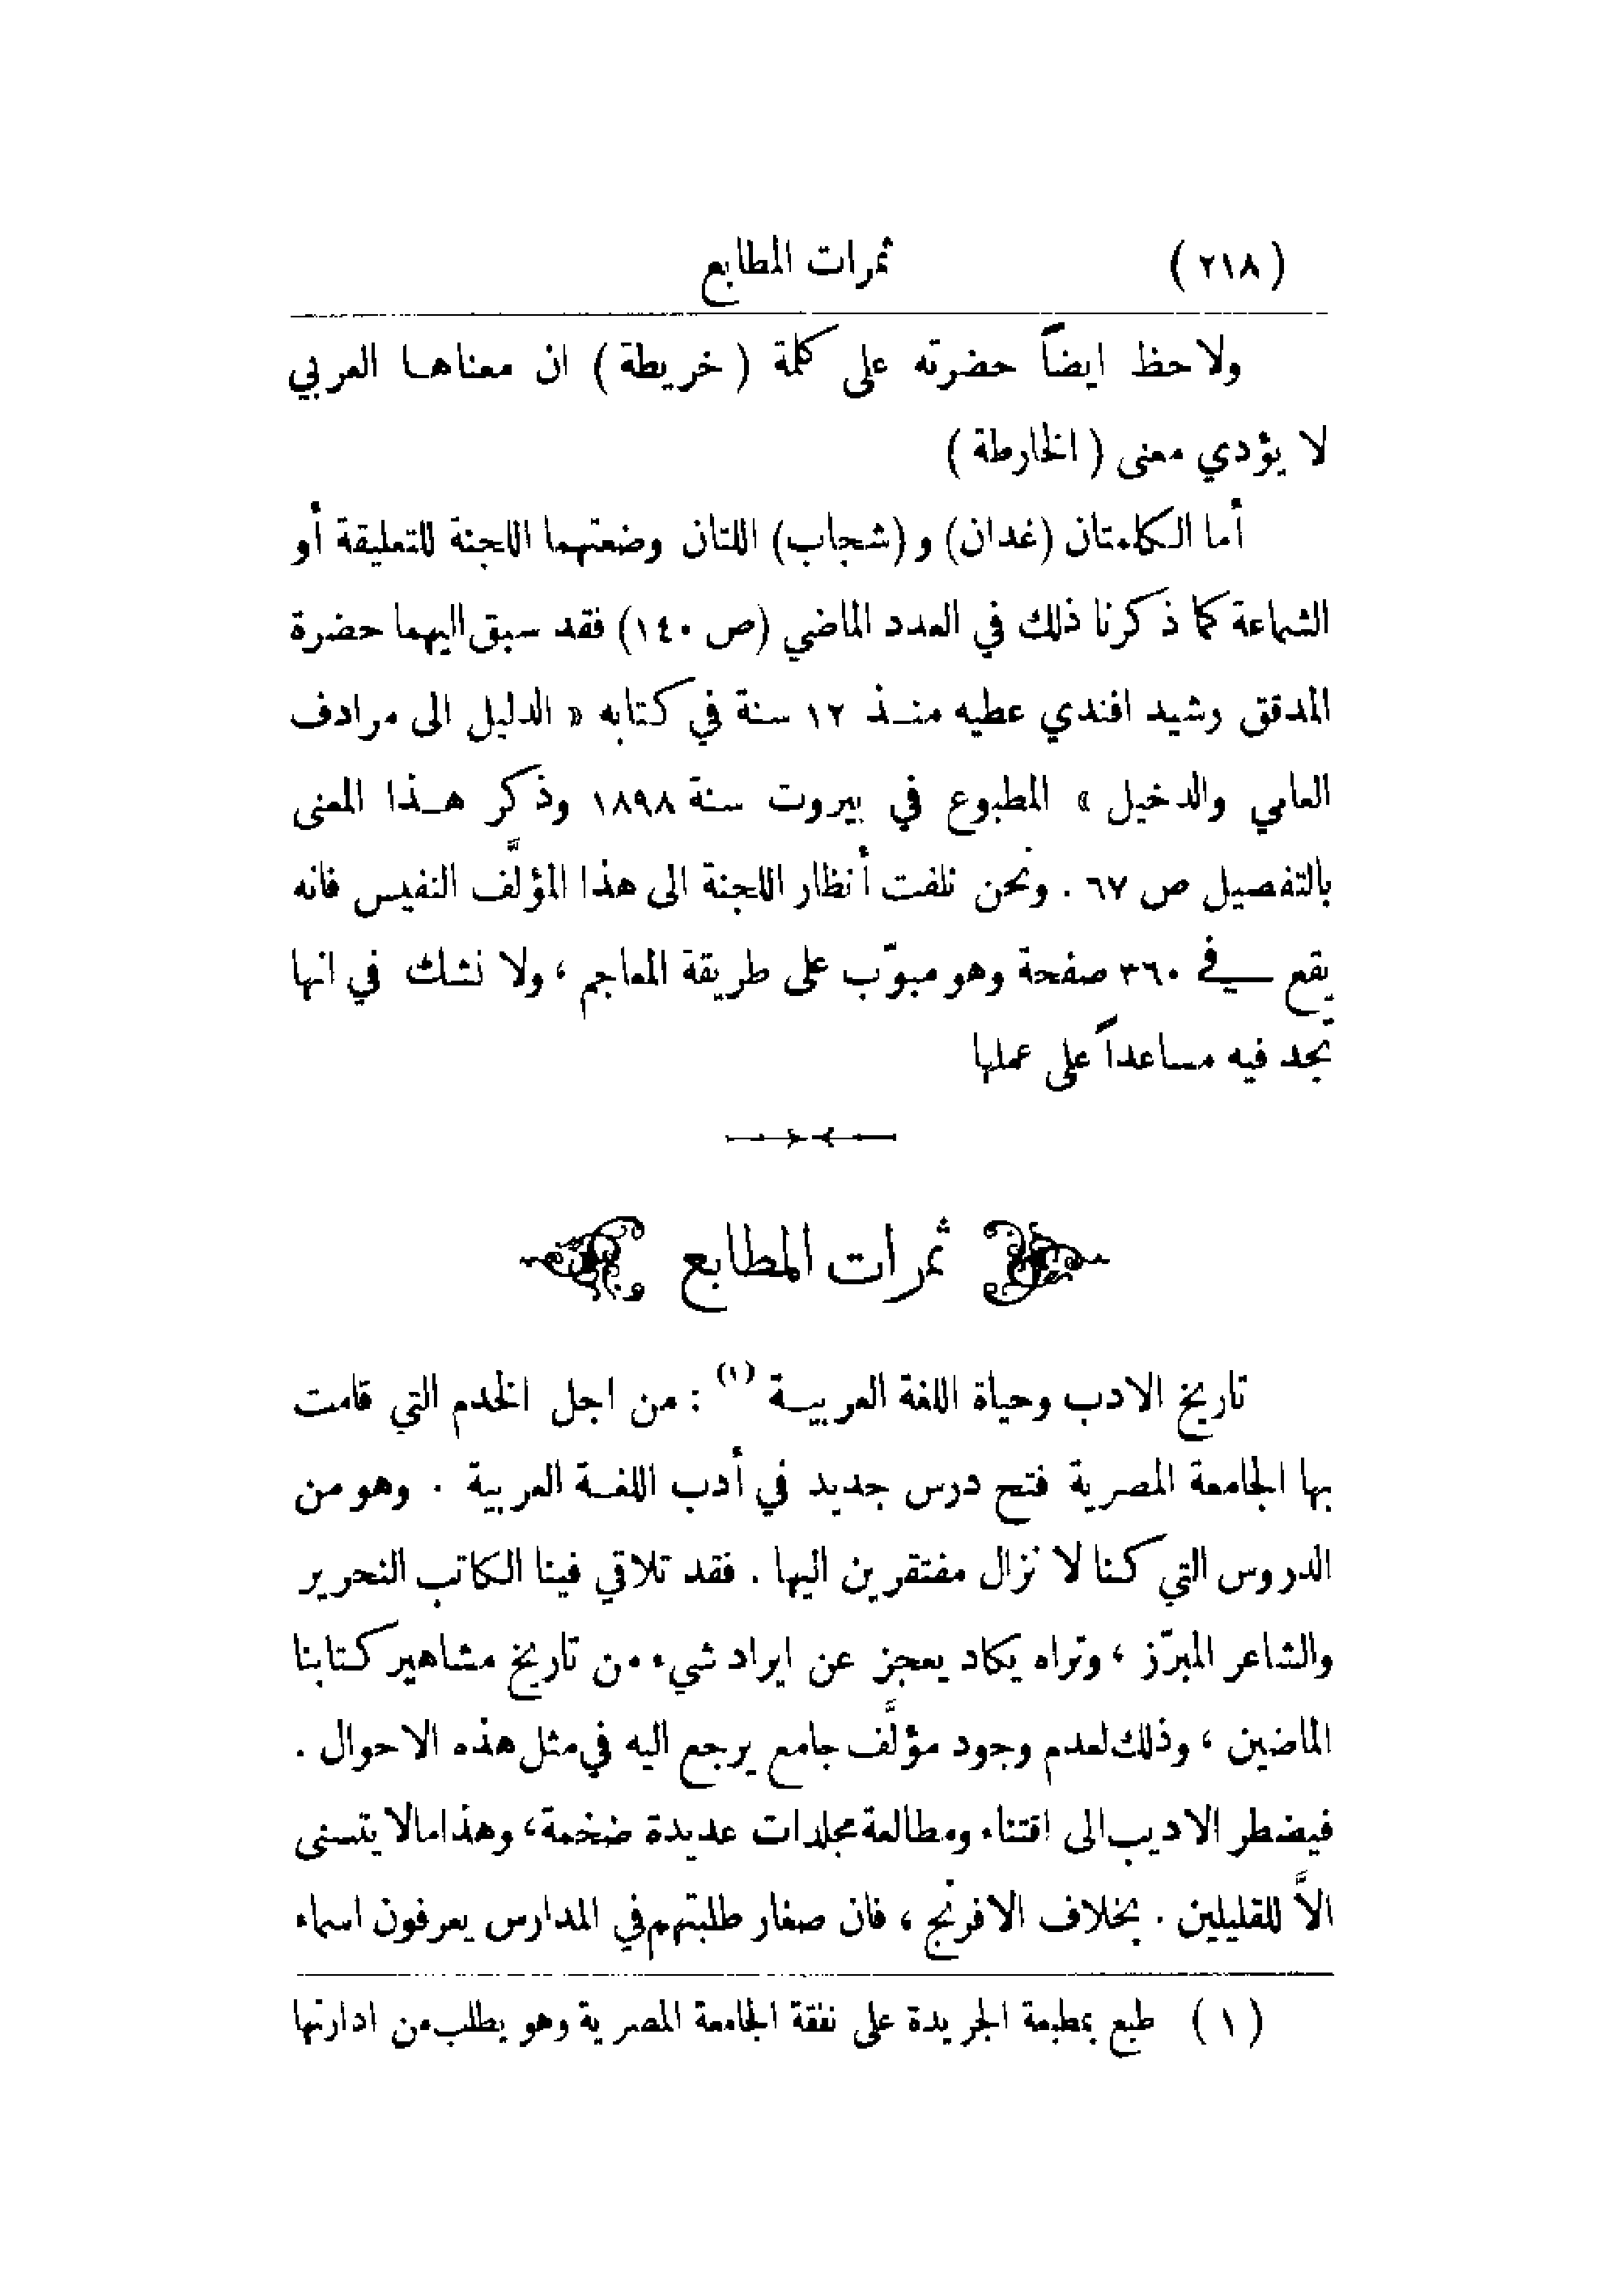 (٢١٨) ثمرات المطابع
ولاحظ ايضاً حضرته على كلمة (خريطة) ان معناها العربي
لا يؤدي معنى (الخارطة)
أما الكلمتان (غدان) و(شجاب) اللتان وضعتهما اللجنة للتعليقة أو
الشماعة كما ذكرنا ذلك في العدد الماضي (ص ١٤٠) فقد سبق اليهما حضرة
المدقق رشيد افندي عطيه منذ ١٢ سنة في كتابه « الدليل الى مرادف
العامي والدخيل » المطبوع في بيروت سنة ١٨٩٨ وذكر هذا المعنى
بالتفصيل ص ٦٧ . ونحن نلفت أنظار اللجنة الى هذا المؤلَّف النفيس فانه
يقع في ٣٦٠ صفحة وهو مبوّب على طريقة المعاجم ، ولا نشك في انها
تجد فيه مساعداً على عملها
ثمرات المطابع
تاريخ الادب وحياة اللغة العربية (١) : من اجل الخدم التي قامت
بها الجامعة المصرية فتح درس جديد في أدب اللغة العربية . وهو من
الدروس التي كنا لا نزال مفتقرين اليها . فقد تلاقي فينا الكاتب النحرير
والشاعر المبرّز ، وتراه يكاد يعجز عن ايراد شيء من تاريخ مشاهير كتابنا
الماضين ، وذلك لعدم وجود مؤلَّف جامع يرجع اليه في مثل هذه الاحوال .
فيضطر الاديب الى اقتناء ومطالعة مجلدات عديدة ضخمة ، وهذا ما لا يتسنى
الاَّ للقليلين . بخلاف الافرنج ، فان صغار طلبتهم في المدارس يعرفون اسماء
(١) طبع بمطبعة الجريدة على نفقة الجامعة المصرية وهو يطلب من ادارتها